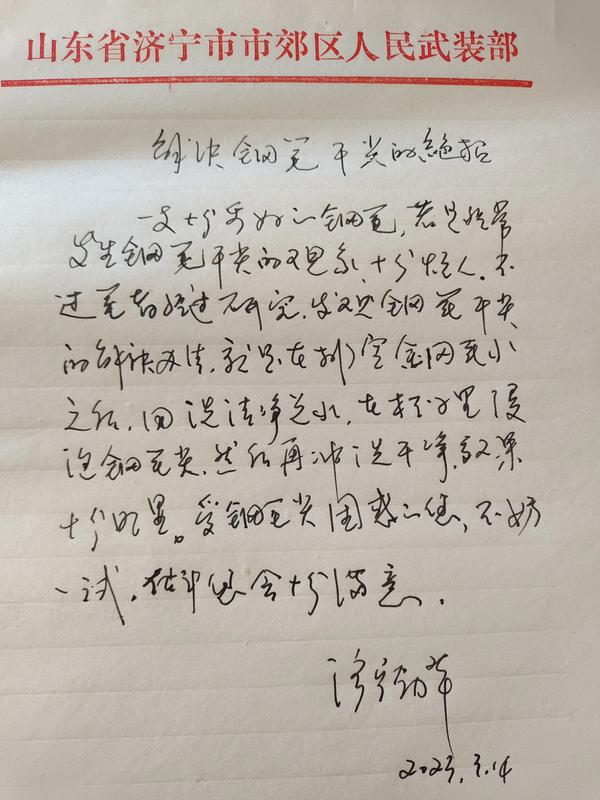 山东省济宁市市郊区人民武装部
解决钢笔干尖的绝招
一支十分好的钢笔,若是经常
发生钢笔干尖的现象,十分烦人。不
过笔者经过研究,发现钢笔干尖
的解决办法,就是在排空钢笔水
之后,用洗洁净兑水,在杯子里浸
泡钢笔尖,然后再冲洗干净,效果
十分明显。受钢笔尖困惑的您,不妨
一试,估计您会十分满意。
济宁劲草
2023.3.14